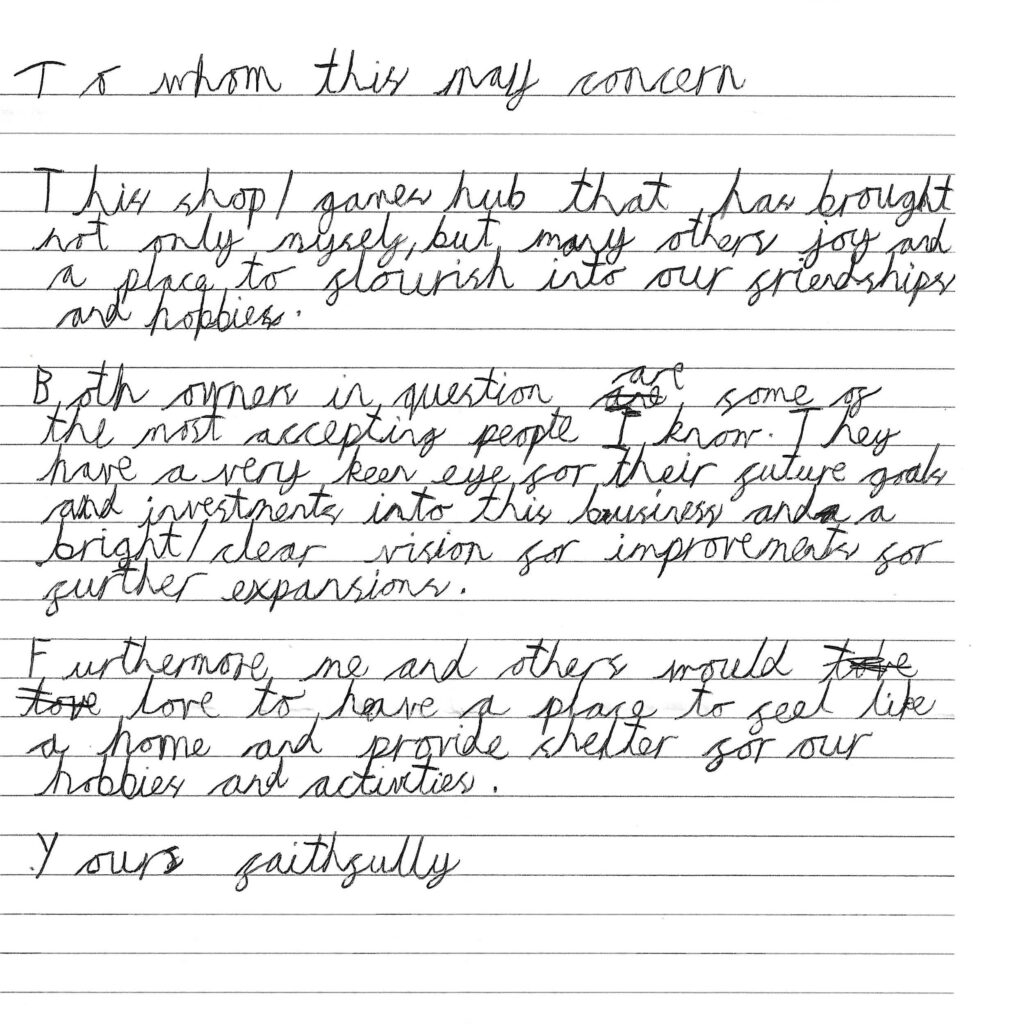 To whom this may concern
This shop/games hub that has brought
not only myself, but many others joy and
a place to flourish into our friendships
and hobbies.
Both owners in question are some of
the most accepting people I know. They
have a very keen eye for their future goals
and investments into this business and a
bright/clear vision for improvements for
further expansions.
Furthermore, me and others would
love to have a place to feel like
a home and provide shelter for our
hobbies and activities.
Yours faithfully